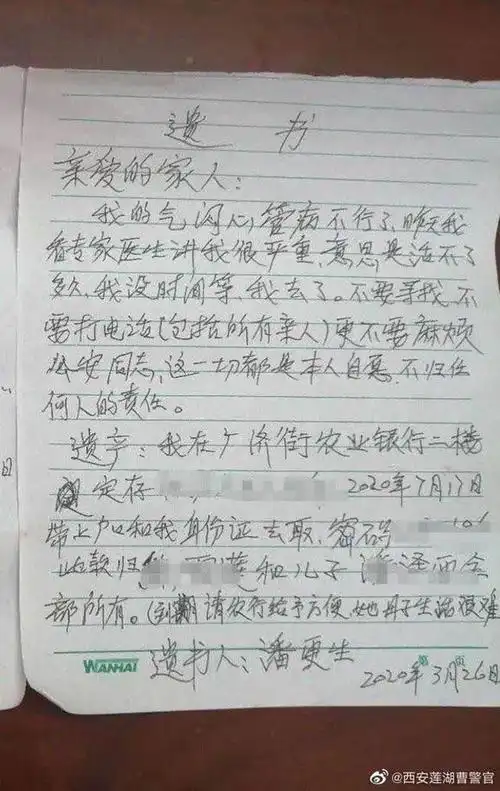 遗 书
亲爱的家人:
我的气闷心管病不行了,昨天我
看专家医生讲我很严重,意思是活不了
多久,我没时间等,我去了。不要寻找,不
需打电话(包括所有亲人)更不需麻烦
公安同志,这一切都是本人自愿,不归任
何人的责任。
遗产:我在广济街农业银行二楼
定存 2020年7月17日
带上户口和我身份证去取,密码
此款归 和儿子 全
部所有。(到期请农行给予方便,她母子生活很难
遗书人:潘更生
2020年3月26日
WANHAI
日
@西安莲湖曹警官